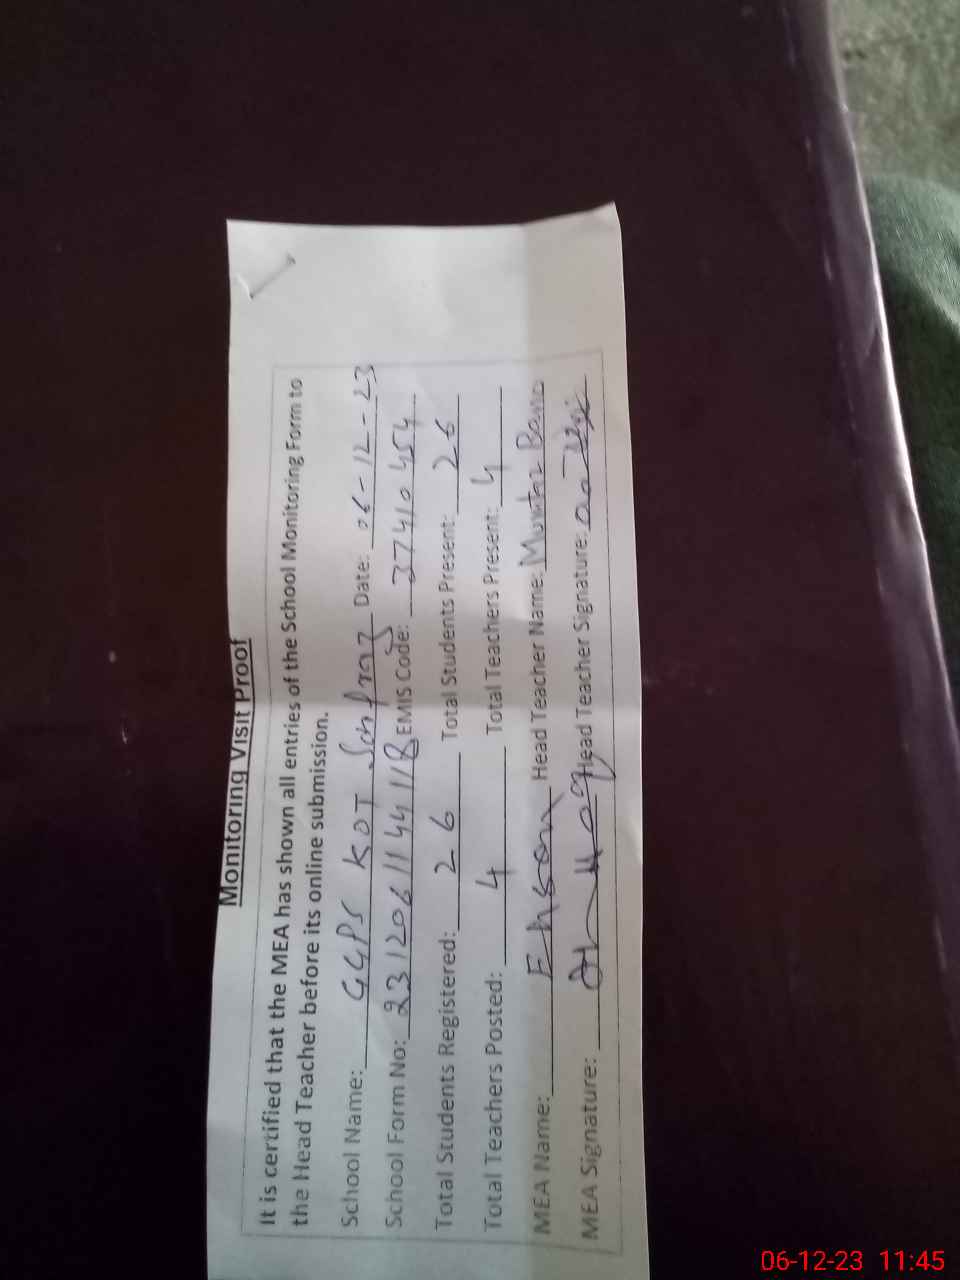 Monitoring Visit Proof
It is certified that the MEA has shown all entries of the School Monitoring Form to
the Head Teacher before its online submission.
School Name: GGPS KOT Sarfraz Date: 06-12-23
School Form No: 231206114411 18 EMIS Code: 37410454
Total Students Registered: 26 Total Students Present: 26
Total Teachers Posted: 4 Total Teachers Present: 4
MEA Name: Ehsan Head Teacher Name: Mumtaz Bano
MEA Signature: Head Teacher Signature:
06-12-23 11:45